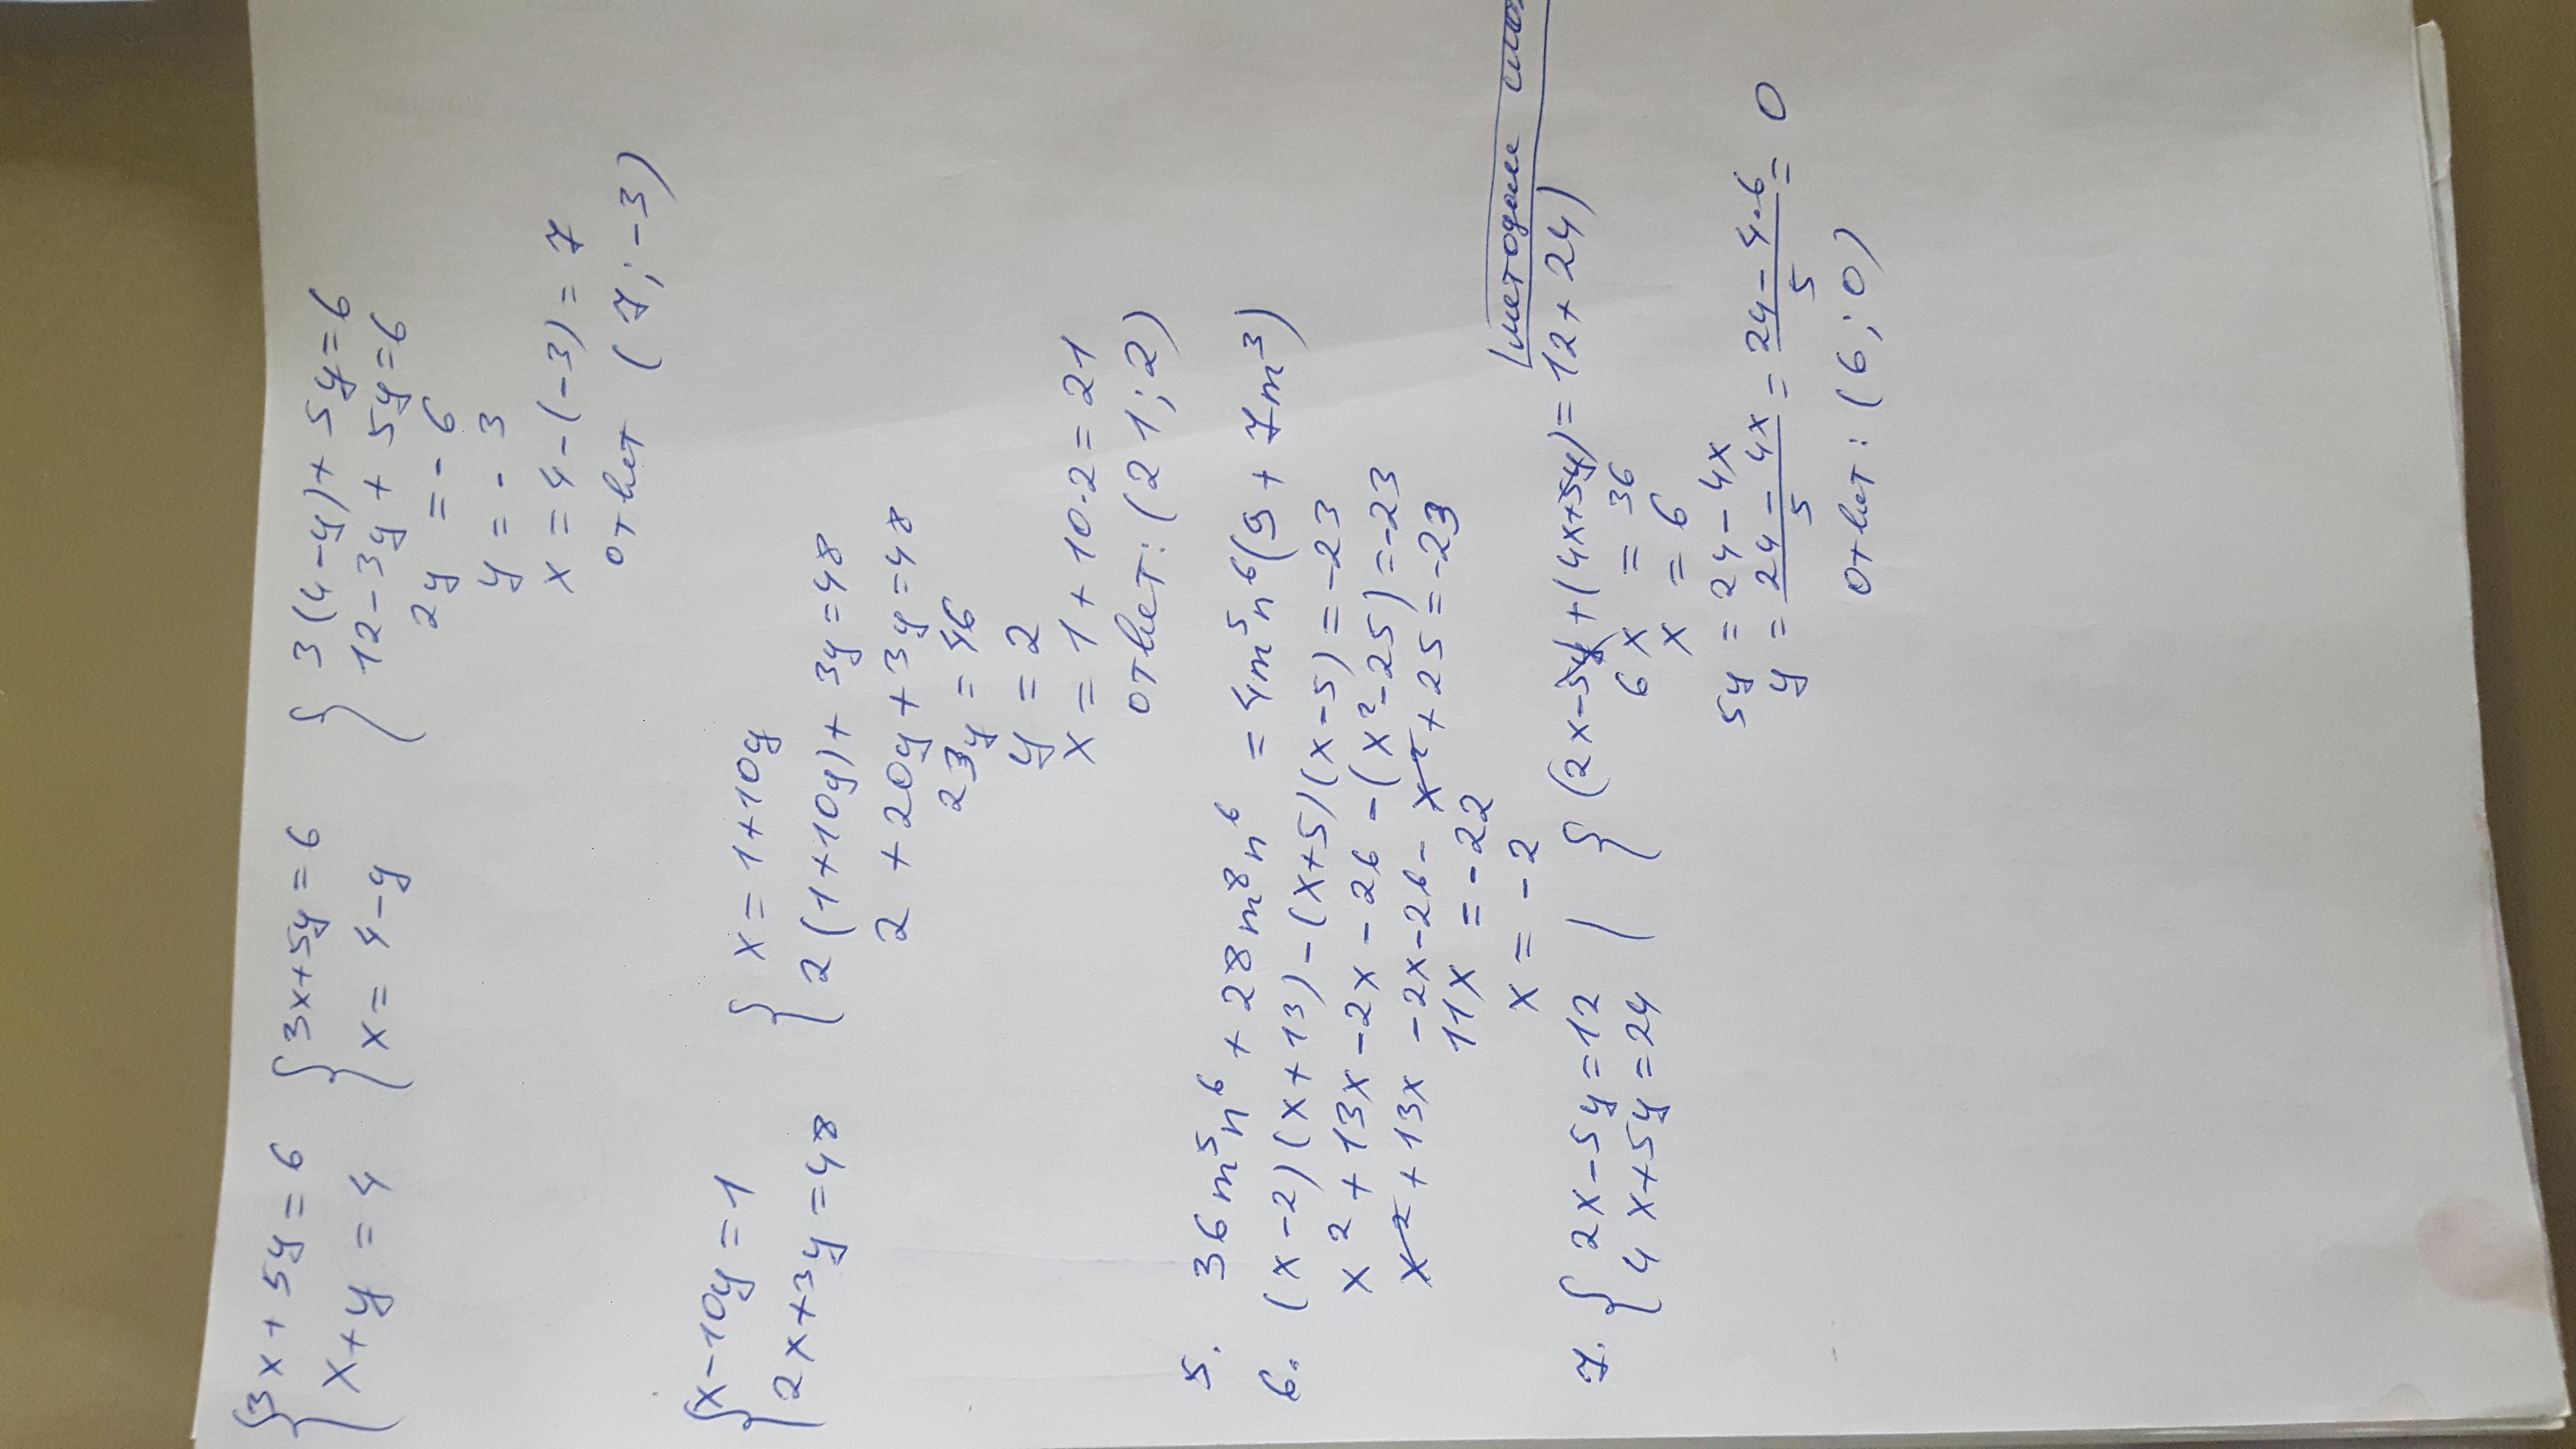 { 3x + 5y = 6 { 3x+5y = 6 { 3(4-y)+5y=6
x+y = 4 x = 4-y 12-3y+5y=6
2y = -6
y = -3
x = 4-(-3) = 7
ответ (7; -3)
{ x-10y = 1 { x = 1+10y
2x+3y = 48 2(1+10y)+3y=48
2+20y+3y=48
23y = 46
y = 2
x = 1+10·2=21
ответ: (21; 2)
5. 36m⁵n⁶ + 28m⁸n⁶ = 4m⁵n⁶(9 + 7m³)
6. (x-2)(x+13)-(x+5)(x-5) = -23
x²+13x-2x-26-(x²-25)=-23
x²+13x-2x-26-x²+25=-23
11x = -22
x = -2
методом
7. { 2x-5y=12 | { (2x-5y)+(4x+5y)=12+24)
4x+5y=24 6x = 36
x = 6
5y = 24-4x
y = 24-4x/5 = 24-4·6/5 = 0
Ответ: (6; 0)